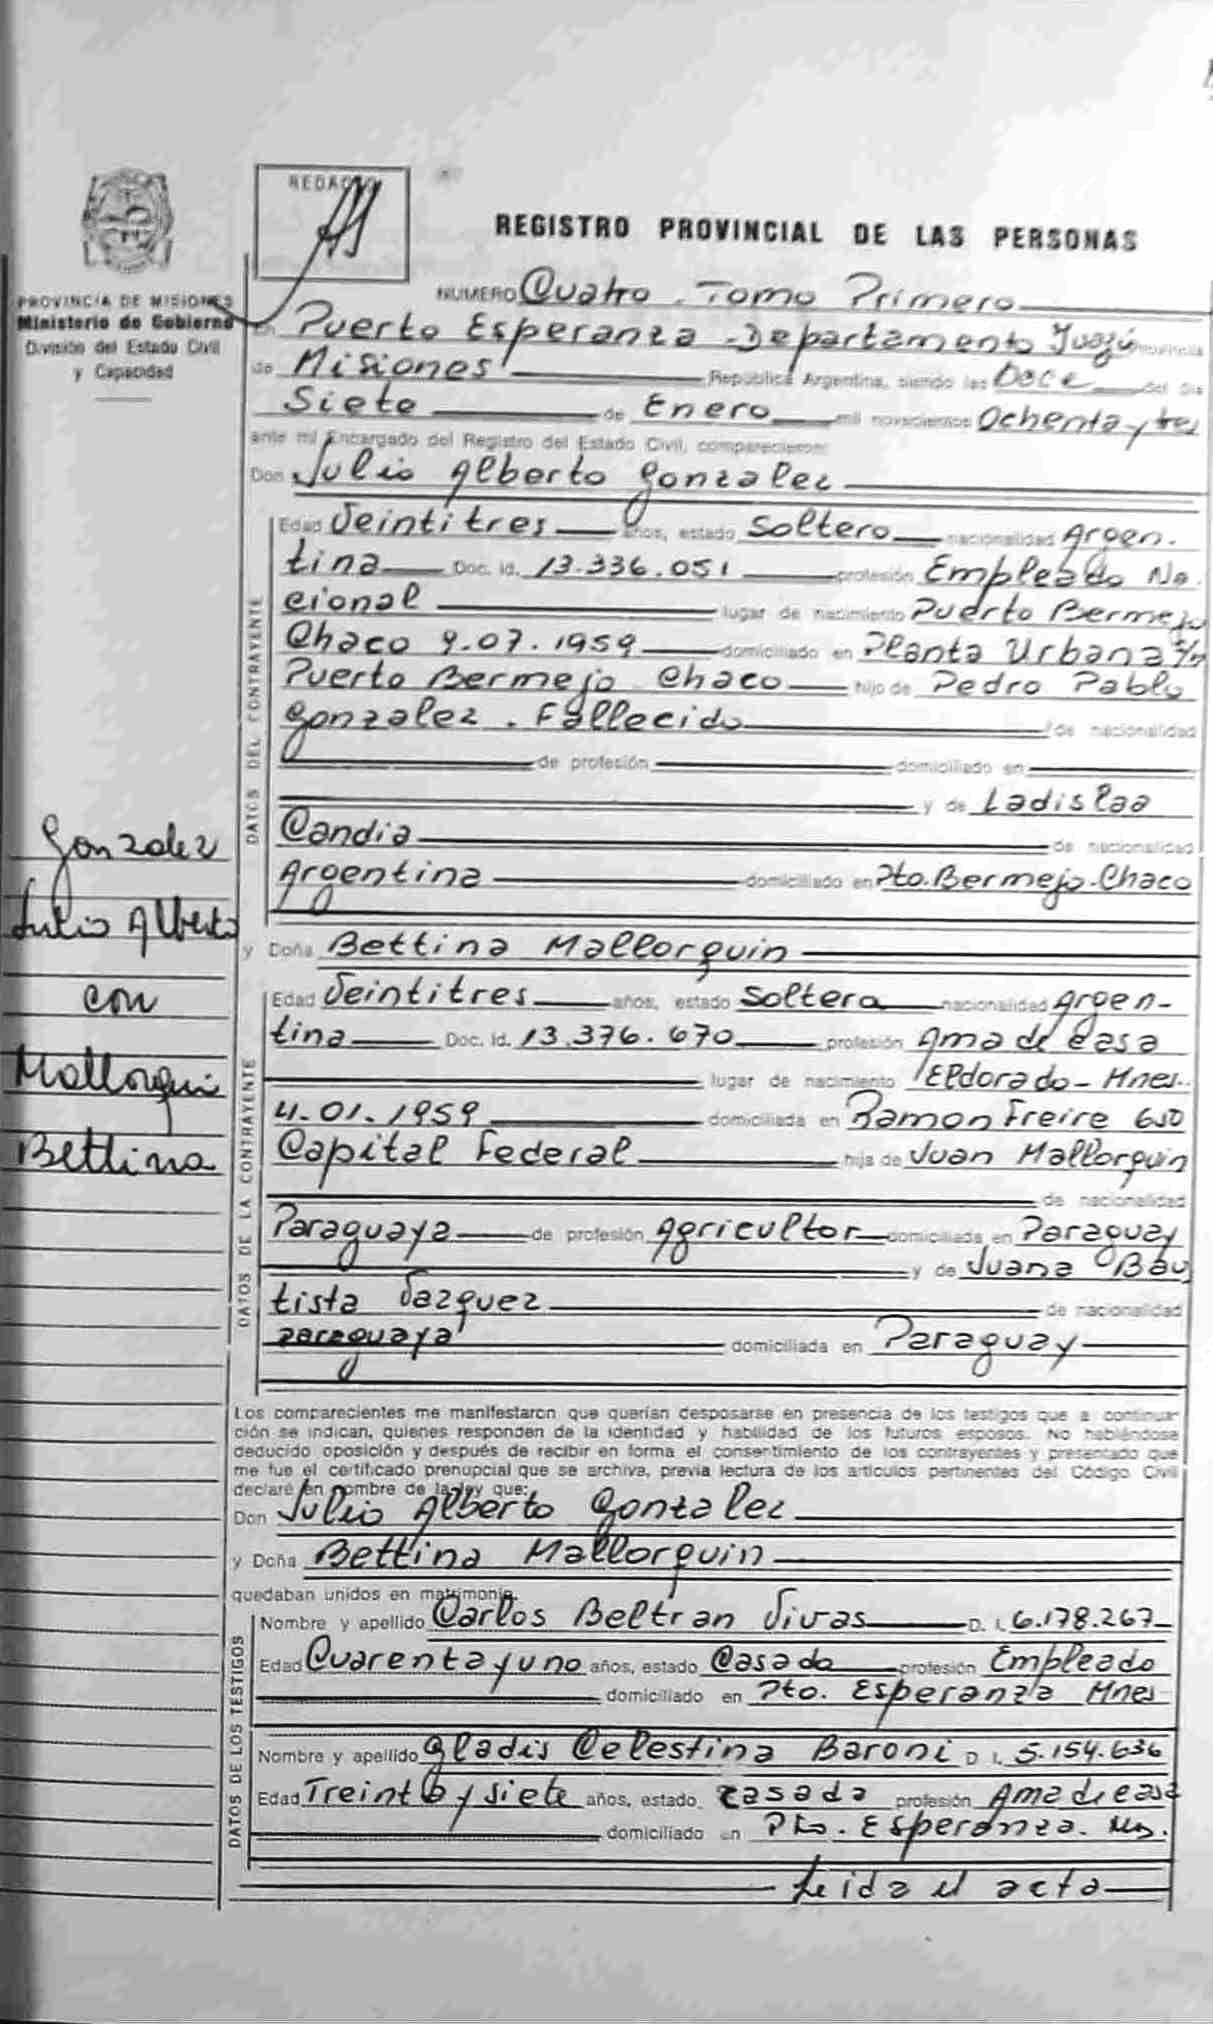 REDACTO
REGISTRO PROVINCIAL DE LAS PERSONAS
PROVINCIA DE MISIONES
Ministerio de Gobierno
División del Estado Civil
y Capacidad
NUMERO Cuatro . Tomo Primero
En Puerto Esperanza - Departamento Iuazú Provincia
de Misiones República Argentina, siendo las Doce del día
Siete de Enero mil novecientos Ochenta y tres
ante mi Encargado del Registro del Estado Civil, comparecieron:
Don Julio Alberto Gonzalez
DATOS DEL CONTRAYENTE
Edad Veintitres años, estado Soltero nacionalidad Argen.
tina Doc. Id. 13.336.051 profesión Empleado Na.
cional lugar de nacimiento Puerto Bermejo
Chaco 9.07.1959 domiciliado en Planta Urbana S/n
Puerto Bermejo Chaco hijo de Pedro Pablo
Gonzalez . Fallecido de nacionalidad
de profesión domiciliado en
y de Ladislaa
Candia de nacionalidad
Argentina domiciliado en Pto. Bermejo - Chaco
Gonzalez
Julio Alberto
con
Mallorquin
Bettina
y Doña Bettina Mallorquin
DATOS DE LA CONTRAYENTE
Edad Veintitres años, estado Soltera nacionalidad Argen-
tina Doc. Id. 13.376.670 profesión Ama de casa
lugar de nacimiento Eldorado - Mnes.
4.01.1959 domiciliada en Ramon Freire 650
Capital Federal hija de Juan Mallorquin
de nacionalidad
Paraguaya de profesión Agricultor domiciliada en Paraguay
y de Juana Bau
tista Vazquez de nacionalidad
paraguaya domiciliada en Paraguay
Los comparecientes me manifestaron que querían desposarse en presencia de los testigos que a continuar
ción se indican, quienes responden de la identidad y habilidad de los futuros esposos. No habiéndose
deducido oposición y después de recibir en forma el consentimiento de los contrayentes y presentado que
me fue el certificado prenupcial que se archiva, previa lectura de los artículos pertinentes del Código Civil
declaré en nombre de la ley que:
Don Julio Alberto Gonzalez
y Doña Bettina Mallorquin
quedaban unidos en matrimonio.
DATOS DE LOS TESTIGOS
Nombre y apellido Carlos Beltran Vivas D. I. 6.178.267
Edad Cuarenta y uno años, estado Casado profesión Empleado
domiciliado en Pto. Esperanza Mnes
Nombre y apellido Gladis Celestina Baroni D I. 5.154.636
Edad Treinta y siete años, estado casada profesión Ama de casa
domiciliado en Pto. Esperanza. Ms.
Leida el acta